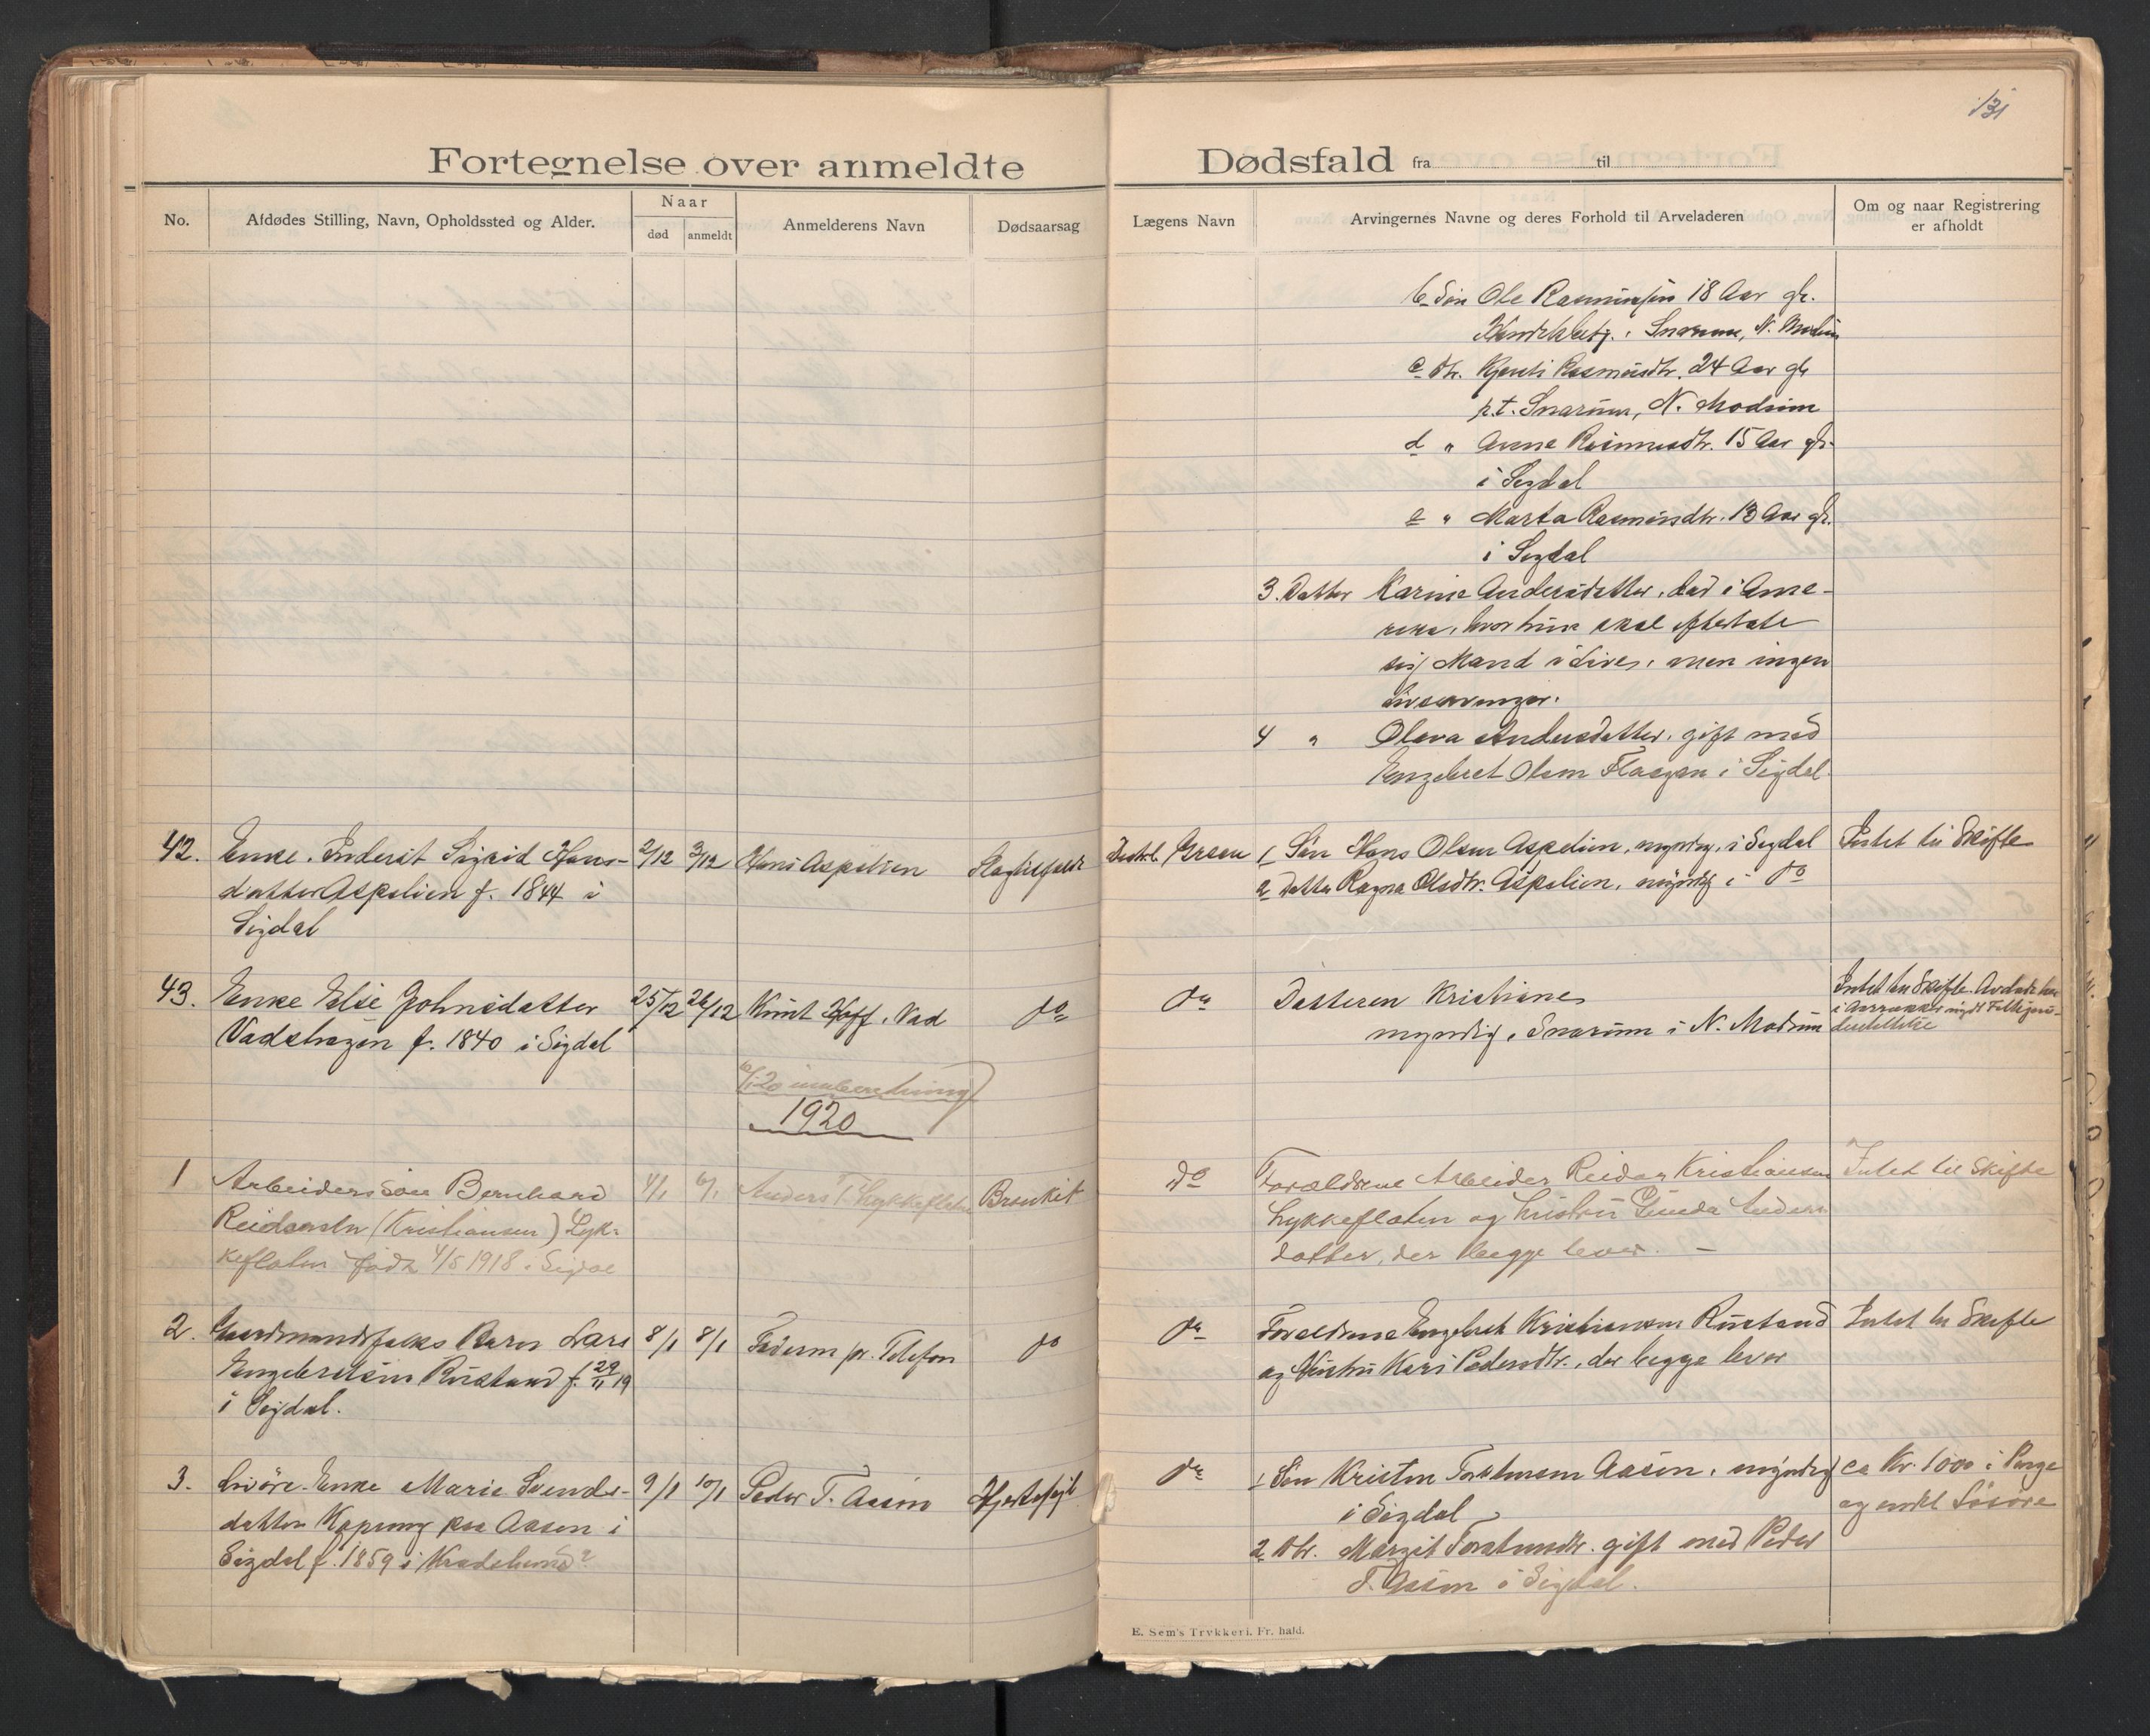 131
Fortegnelse over anmeldte Dødsfald fra til
No.
Afdødes Stilling, Navn, Opholdssted og Alder.
Naar
død
anmeldt
Anmelderens Navn
Dødsaarsag
Lægens Navn
Arvingernes Navne og deres Forhold til Arveladeren
Om og naar Registrering
er afholdt
b Søn Ole Rasmussen 18 Aar gl.
i Snarum, N. Modum
c Dtr. Kjersti Rasmusdtr. 24 Aar gl
p.t. Snarum, N. Modum
d " Anne Rasmusdtr. 15 Aar gl.
i Sigdal
e " Marta Rasmusdtr. 13 Aar gl.
i Sigdal
3. Datter Karine Andersdatter, død i Ame-
rika, hvor hun skal efterlate
sig Mand i Live, men ingen
Livsarvinger.
4 " Olava Andersdatter, gift med
Engebret Olsen Flaagan i Sigdal
42. Enke, Inderst Sigrid Hans-
datter Aspelien f. 1844 i
Sigdal
2/12 3/12 Hans Aspelien Slagtilfælde
Distr.l. Green
1 Søn Hans Olsen Aspelien, myndig, i Sigdal
2 Datter Ragna Olsdtr. Aspelien, myndig i do
Intet til Skifte
43. Enke Else Johnsdatter
Vadshagen f. 1840 i Sigdal
25/12 26/12 Knut Hoff, Vad do
do
Datteren Kristiane
myndig, Snarum i N. Modum
Intet til Skifte. Avdøde har
i Aarrækker nydt Fattigun-
derstøttelse
6/1 20 innberetning
1920
1 Arbeiderssøn Bernhard
Reidarsen (Kristiansen) Lyk-
keflaten født 4/5 1918 i Sigdal
4/1 6/1 Anders T. Lykkeflaten Bronkit
do
Forældrene Arbeider Reidar Kristiansen
Lykkeflaten og hustru Gunda Anders
datter, der begge lever. —
Intet til Skifte
2. Gaardmandsfolks Barn Lars
Engebretsen Rustand f. 29/11 19
i Sigdal.
8/1 8/1 Faderen pr. Telefon do
do
Forældrene Engebret Kristiansen Rustand
og Hustru Kari Pedersdtr., der begge lever
Intet til Skifte
3. Livøre-Enke Marie Svends-
datter Kopseng paa Aasen i
Sigdal f. 1859 i Krødsherad?
9/1 10/1 Peder T. Aasen Hjertefeil
do
1 Søn Kristen Torstensen Aasen, myndig
i Sigdal
2 Dtr. Margit Torstensdtr. gift med Peder
T. Aasen i Sigdal.
ca Kr. 1000 i Penge
og endel Løsøre
E. Sem's Trykkeri. Fr. hald.